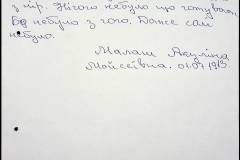 з нір. Нічого небуло що готувати
Бо небуло з чого. Даже солі
небуло.
Малаш Акуліна
Мойсеївна. 01.07.1913.